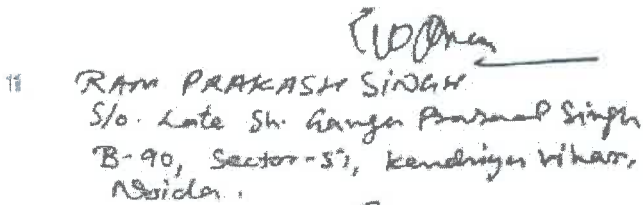 11 RAM PRAKASH SINGH
S/o. Late Sh. Ganga Prasad Singh
B-90, Sector-51, Kendriya Vihar,
Noida.